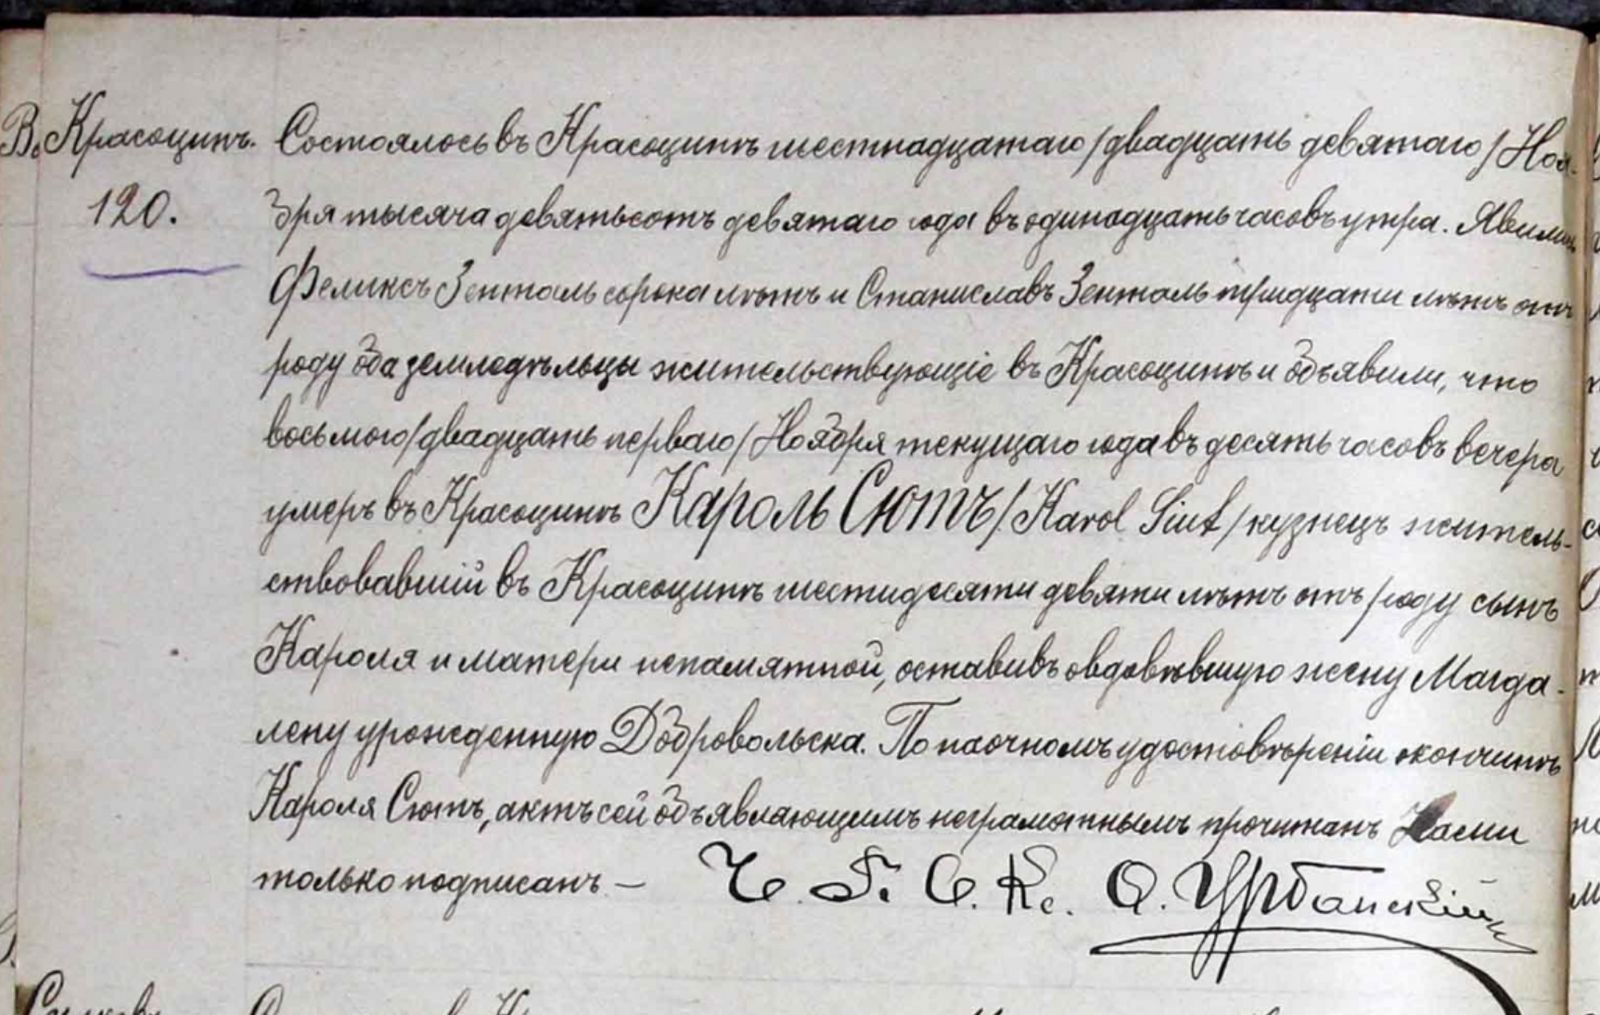 В. Красоцинѣ.
120.
Состоялось въ Красоцинѣ шестнадцатаго /двадцать девятаго/ Ноя-
бря тысяча девятьсотъ девятаго года въ одинадцать часовъ утра. Явились
Феликсъ Зенталь сорока лѣтъ и Станиславъ Зенталь тридцати лѣтъ отъ
роду оба земледѣльцы жительствующіе въ Красоцинѣ и объявили, что
восьмого /двадцать перваго/ Ноября текущаго года въ десять часовъ вечера
умеръ въ Красоцинѣ Кароль Сютъ /Karol Siut/ кузнецъ житель-
ствовавшій въ Красоцинѣ шестидесяти девяти лѣтъ отъ роду сынъ
Кароля и матери непамятной, оставивъ овдовѣвшую жену Магда-
лену урожденную Добровольска. По наочномъ удостовѣреніи о кончинѣ
Кароля Сютъ, актъ сей объявляющимъ неграмотнымъ прочитанъ Нами
только подписанъ —
О. Урбанскій